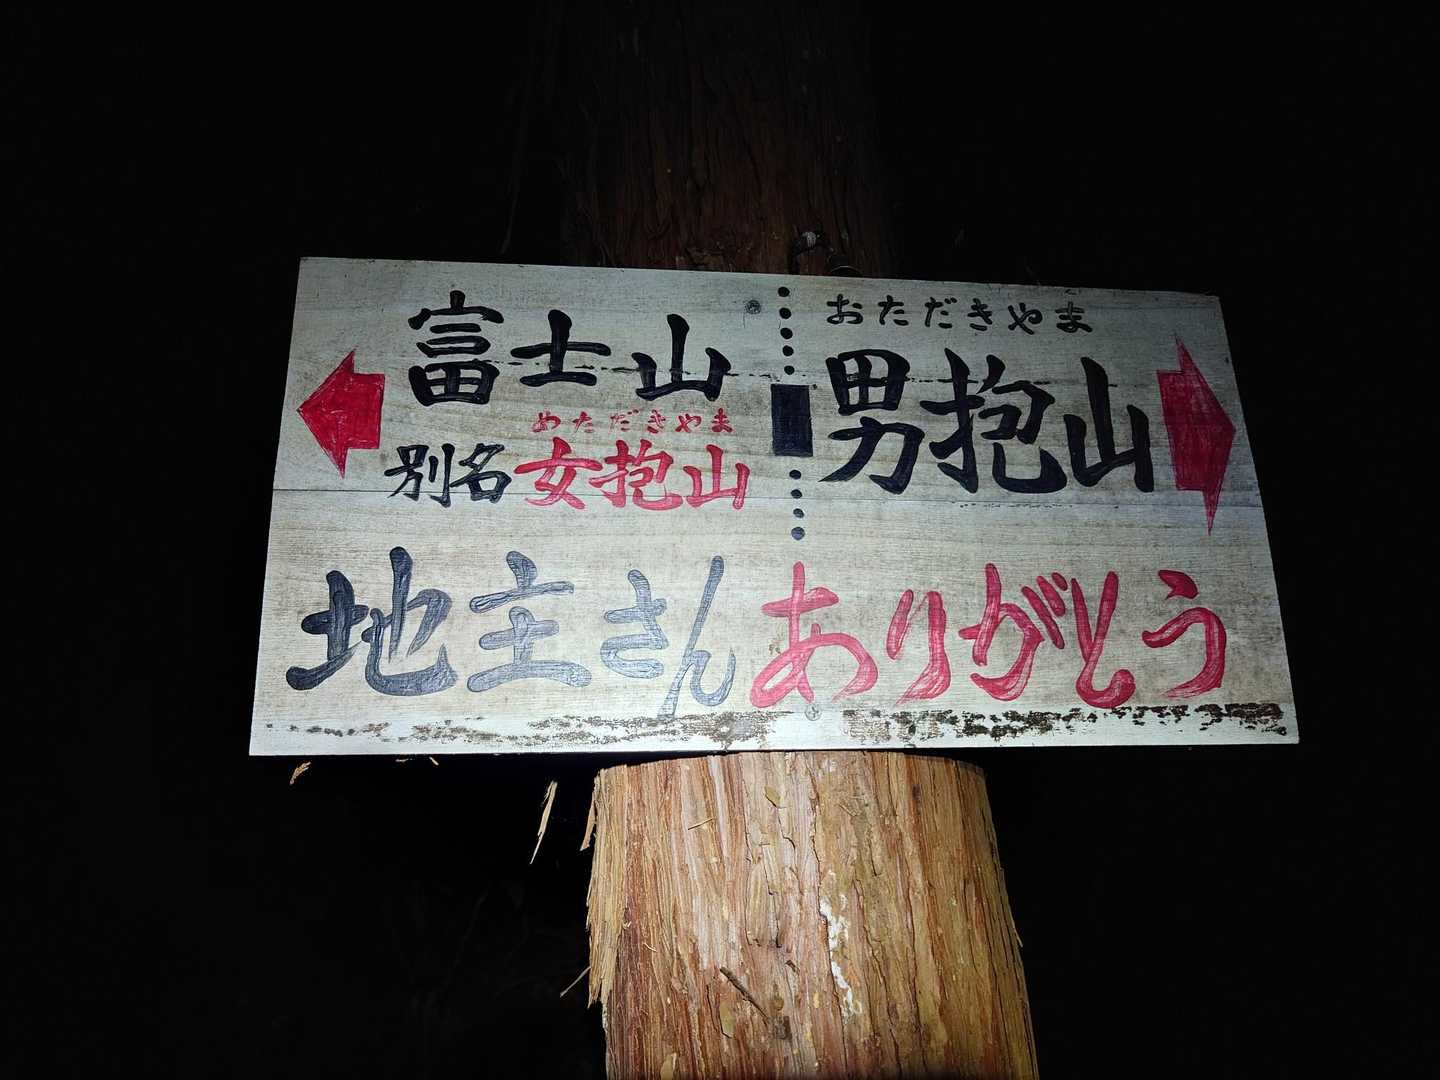 富士山
めただきやま
別名女抱山
おただきやま
男抱山
地主さんありがとう